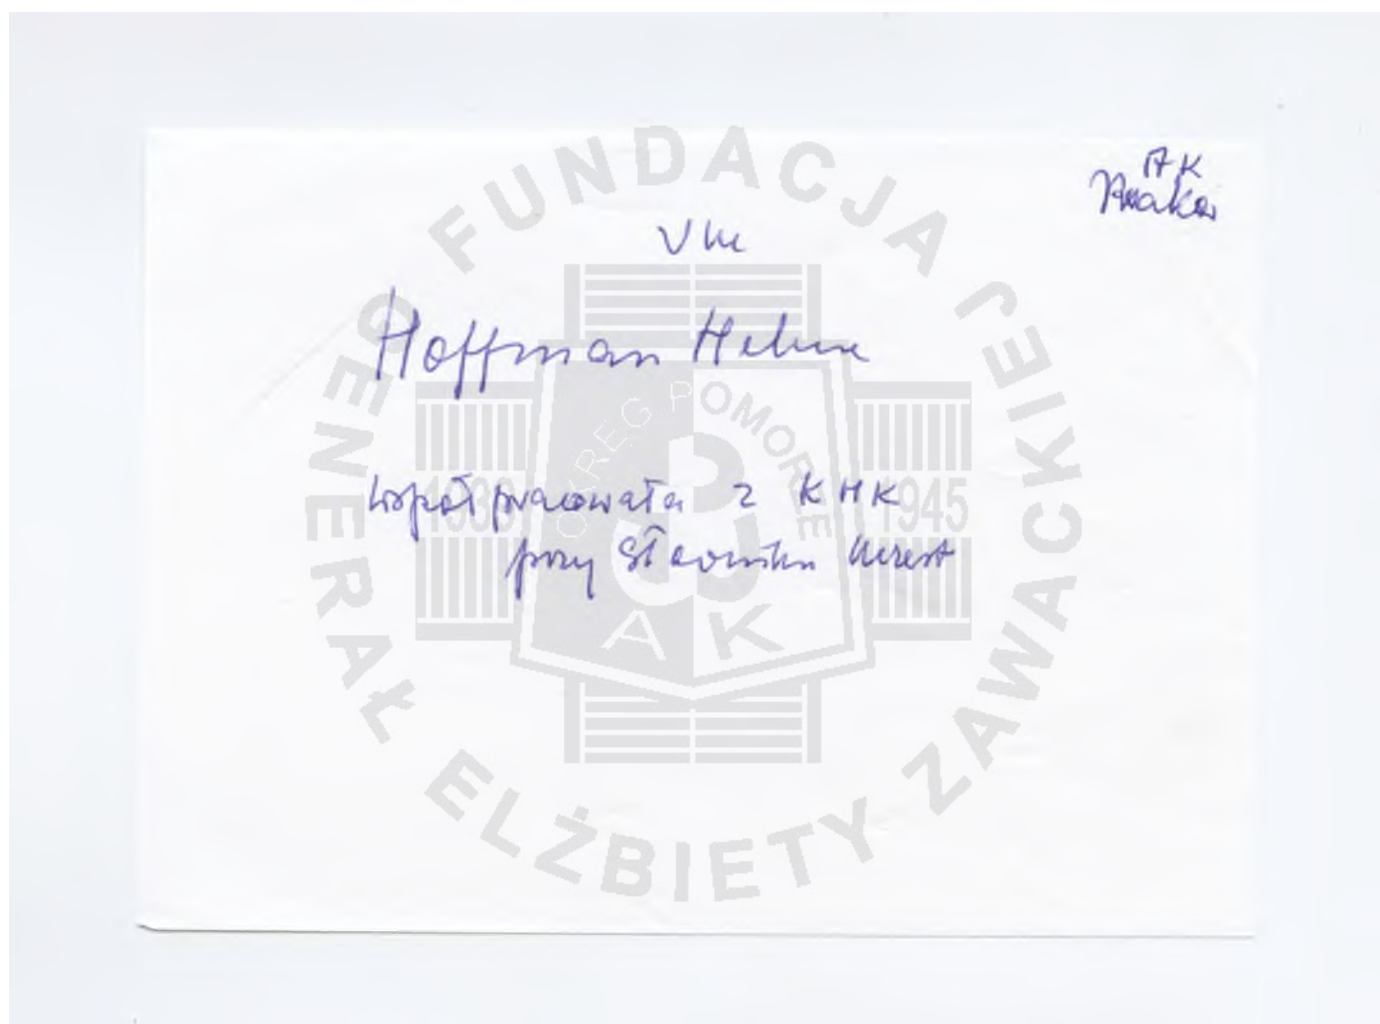 AK
Kraków
VM
Hoffman Helena
współpracowała z KHK
przy Słowniku
FUNDACJA GENERAŁ ELŻBIETY ZAWACKIEJ
OKRĘG POMORZE
1939 1945
AK